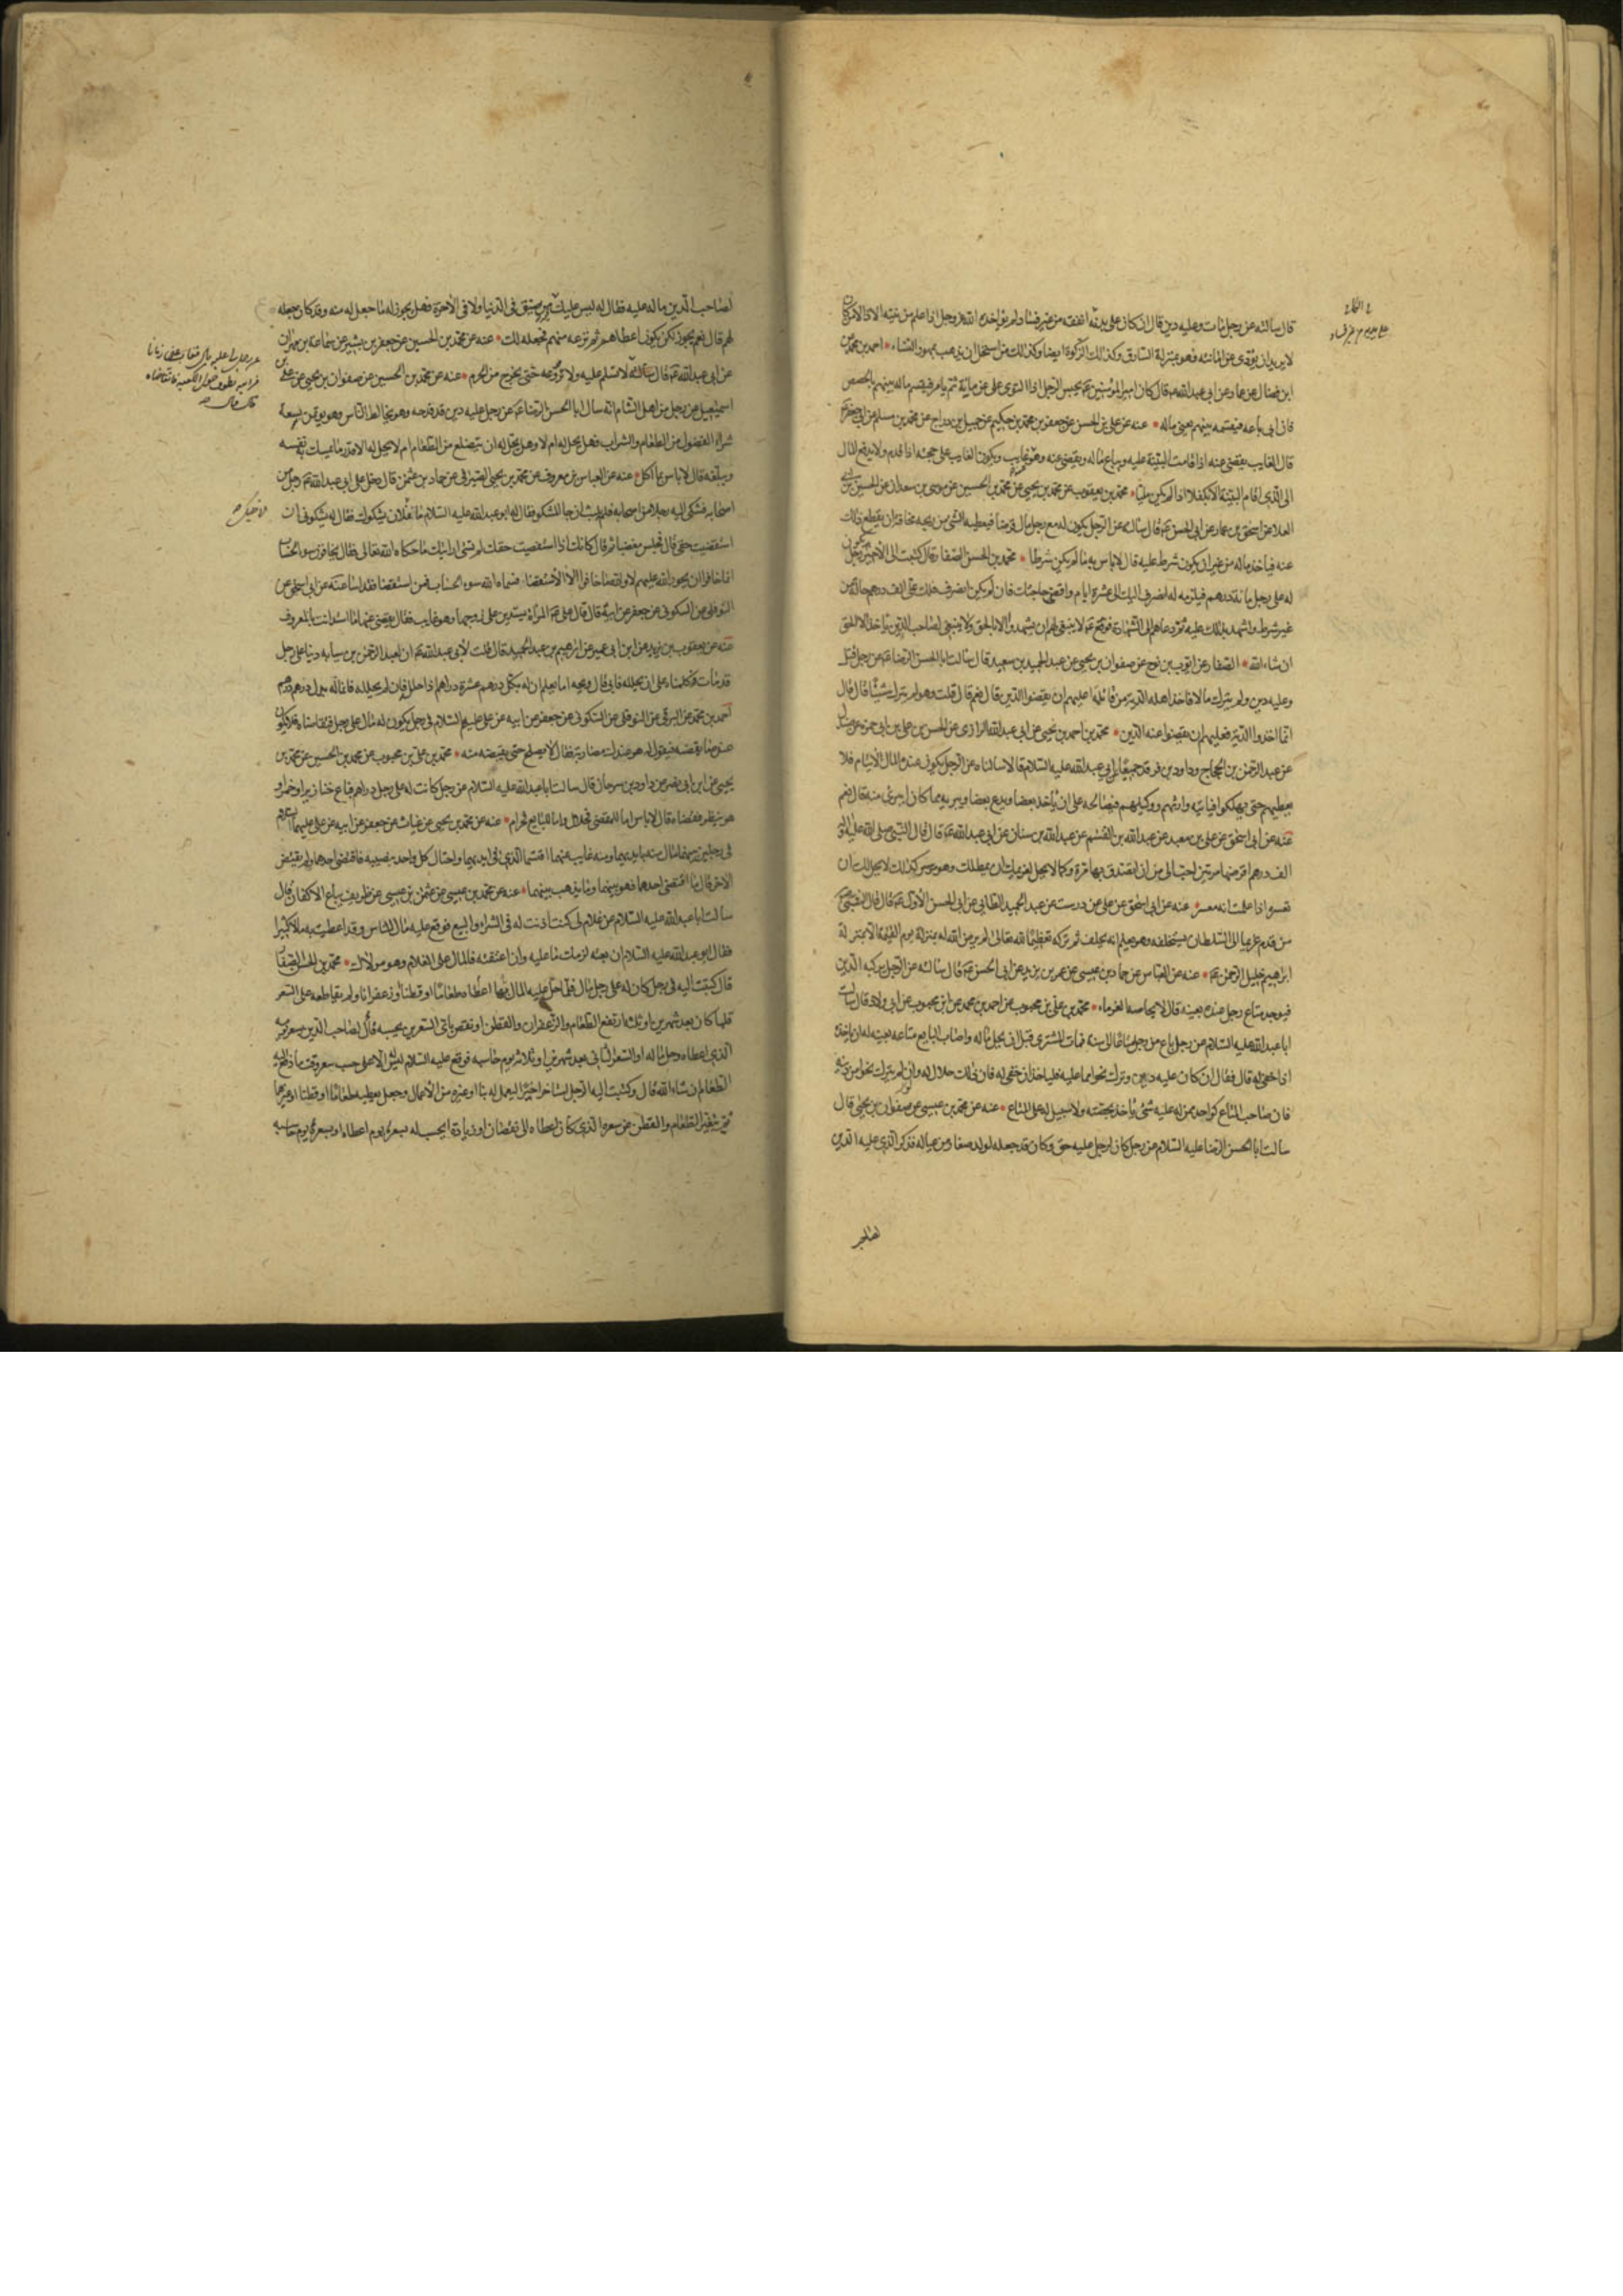 قال سالته عن رجل مات وعليه دين قال ان كان على بدنه انفقه من غير فساد لم يؤاخذه الله عز وجل اذا علم من نيته الاداء الا من كان
لا يريد ان يؤدى عن امانته فهو بمنزلة السارق وكذلك الزكوة ايضا وكذلك من استحل ان يذهب بمهور النساء احمد بن محمد عن
ابن فضال عن عمار عن ابى عبد الله قال كان امير المؤمنين يحبس الرجل اذا التوى على غرمائه ثم يامر فيقسم ماله بينهم بالحصص
فان ابى باعه فيقسمه بينهم يعنى ماله عنه عن على بن الحسن عن جعفر بن محمد بن حكيم عن جميل بن دراج عن محمد بن مسلم عن ابى جعفر
قال الغايب يقضى عنه اذا قامت البينة عليه ويباع ماله ويقضى عنه وهو غايب ويكون الغايب على حجته اذا قدم ولا يدفع المال
الى الذى اقام البينة الا بكفلاء اذا لم يكن مليا محمد بن يعقوب عن محمد بن يحيى عن محمد بن الحسين عن موسى بن سعدان عن الحسين بن ابى
العلا عن اسحق بن عمار عن ابى الحسن قال سالته عن الرجل يكون له مع رجل مال قرضا فيعطيه الشى من ربحه مخافة ان يقطع ذلك
عنه فياخذ ماله من غير ان يكون شرط عليه قال لا باس به ما لم يكن شرطا محمد بن الحسن الصفار قال كتبت الى الاخير رجل يكون
له على رجل مائة درهم فيلزمه فيقول له انصرف اليك الى عشرة ايام واقضى حاجتك فان لم انصرف فلك على الف درهم حالة من
غير شرط واشهد بذلك عليه ثم دعاهم الى الشهادة فوقع لا ينبغى لهم ان يشهدوا الا بالحق ولا ينبغى لصاحب الدين ان ياخذ الا الحق
ان شاء الله الصفار عن ايوب بن نوح عن صفوان بن يحيى عن عبد الحميد بن سعيد قال سالت ابا الحسن الرضا عن رجل قتل
وعليه دين ولم يترك مالا فاخذ اهله الدية من قاتله اعليهم ان يقضوا الدين قال نعم قال قلت وهو لم يترك شيئا قال قال
انما اخذوا الدية فعليهم ان يقضوا عنه الدين محمد بن احمد بن يحيى عن ابى عبد الله الرازى عن الحسن بن على بن ابى حمزة عن
عن عبد الرحمن بن الحجاج وداود بن فرقد جميعا عن ابى عبد الله عليه السلام قالا سالناه عن الرجل يكون عنده المال لايتام فلا
يعطيهم حتى يهلكوا فياتيه وارثهم ووكيلهم فيصالحه على ان ياخذ بعضا ويدع بعضا ويبريه مما كان ايبرئ منه قال نعم
عنه عن ابى اسحق عن على بن معبد عن عبد الله بن القسم عن عبد الله بن سنان عن ابى عبد الله قال قال النبى صلى الله عليه واله
الف درهم اقرضها مرتين احب الى من ان اتصدق بها مرة وكما لا يحل لغريمك ان يمطلك وهو موسر كذلك لا يحل لك ان
تعسره اذا علمت انه معسر عنه عن ابى اسحق عن على عن درست عن عبد الحميد الطائى عن ابى الحسن الاول قال قال النبى
من قدم غريما الى السلطان يستحلفه وهو يعلم انه يحلف ثم تركه تعظيما لله تعالى لم يرض الله له بمنزلة يوم القيمة الا بمنزلة
ابراهيم خليل الرحمن عنه عن العباس عن حماد بن عيسى عن عمر بن يزيد عن ابى الحسن قال سالته عن الرجل يركبه الدين
فيوجد متاع رجل عنده بعينه قال لا يحاصه الغرماء محمد بن على بن محبوب عن احمد بن محمد عن ابن محبوب عن ابى ولاد قال سالت
ابا عبد الله عليه السلام عن رجل باع من رجل متاعا الى سنة فمات المشترى قبل ان يحل ماله واصاب البايع متاعه بعينه له ان ياخذه
اذا خفى له قال فقال ان كان عليه دين وترك نحوا مما عليه فلياخذ ان خفى له فان ذلك حلال له وان لم يترك نحوا من دينه
فان صاحب المتاع كواحد ممن له عليه شئ ياخذ بحصته ولا سبيل له على المتاع عنه عن محمد بن عيسى عن صفوان بن يحيى قال
سالت ابا الحسن الرضا عليه السلام عن رجل كان لرجل عليه حق وكان قد جعله لولد صغار من عياله فذكر الذى عليه الدين
لصاحب الدين ماله عليه فقال له ليس عليك فيه ضيق فى الدنيا ولا فى الاخرة فهل يجوز له ما جعل له منه وقد كان جعله
لهم قال نعم يجوز لكن يكون اعطاهم ثم نزعه منهم فجعله لك عنه عن محمد بن الحسين عن جعفر بن بشير عن سماعة بن مهران
عن ابى عبد الله قال سالته لا تسلم عليه ولا تروعه حتى يخرج من الحرم عنه عن محمد بن الحسين عن صفوان بن يحيى عن على بن
اسمعيل عن رجل من اهل الشام انه سال ابا الحسن الرضا عن رجل عليه دين قد فدحه وهو يخالط الناس وهو يؤتمن يسعه
شراء الفضول من الطعام والشراب فهل يحل له ام لا وهل يحل له ان يتضلع من الطعام ام لا يحل له الا قدر ما يمسك به نفسه
ويبلغه قال لا باس بما اكل عنه عن العباس بن معروف عن محمد بن يحيى الصيرفى عن حماد بن عثمن قال دخل على ابى عبد الله رجل من
اصحابه فشكى اليه رجلا من اصحابه فلم يلبث ان جاء المشكو فقال له ابو عبد الله عليه السلام ما لفلان يشكوك فقال له يشكونى ان
استقضيت حقى قال فجلس مغضبا ثم قال كانك اذا استقضيت حقك لم تسئ ارايتك ما حكاه الله تعالى فقال يخافون سوء الحساب
انما خافوا ان يجور الله عليهم لا والله ما خافوا الا الاستقضا فسماه الله سوء الحساب فمن استقضا فقد اساء عنه عن ابى اسحق عن
النوفلى عن السكونى عن جعفر عن ابيه قال قال على المراة تستدين على زوجها وهو غايب فقال يقضى عنها ما استدانت بالمعروف
عنه عن يعقوب بن يزيد عن ابن ابى عمير عن ابراهيم بن عبد الحميد قال قلت لابى عبد الله ان لعبد الرحمن بن سيابه دينا على رجل
قد مات وكلمناه على ان يحلله فابى قال ويحه اما يعلم ان له بكل درهم عشرة دراهم اذا حلله فان لم يحلله فانما له بدل درهم درهم
احمد بن محمد عن البرقى عن النوفلى عن السكونى عن جعفر عن ابيه عن على عليهم السلام فى رجل يكون له مال على رجل فتقاضاه فلا يكون
عنده ما يقضيه فيقول له هو عندك مضاربة فقال لا يصلح حتى يقبضه منه محمد بن على بن محبوب عن محمد بن الحسين عن محمد بن
يحيى عن ابن ابى نصر عن داود بن سرحان قال سالت ابا عبد الله عليه السلام عن رجل كانت له على رجل دراهم فباع خنازير او خمرا و
هو ينظر فقضاه قال لا باس اما للمقضى فحلال واما للبايع فحرام عنه عن محمد بن يحيى عن غياث عن جعفر عن ابيه عن على عليهما السلام
فى رجلين بينهما مال منه بايديهما ومنه غايب عنهما اقتسما الذى فى ايديهما واحتال كل واحد بنصيبه فاقتضى احدهما ولم يقتض
الاخر قال ما اقتضى احدهما فهو بينهما وما يذهب بينهما عنه عن محمد بن عيسى عن عثمن بن عيسى عن ظريف بياع الاكفان قال
سالت ابا عبد الله عليه السلام عن غلام لى كنت اذنت له فى الشراء والبيع فوقع عليه مال للناس وقد اعطيت به مالا كثيرا
فقال ابو عبد الله عليه السلام ان بعته لزمك ما عليه وان اعتقته فالمال على الغلام وهو مولاك محمد بن الحسن الصفار
قال كتبت اليه فى رجل كان له على رجل مال فلما حل عليه المال اعطاه بها طعاما او قطنا او زعفرانا ولم يقاطعه على السعر
فلما كان بعد شهرين او ثلثة ارتفع الطعام والزعفران والقطن او نقص باى السعرين يحسبه قال لصاحب الدين سعر يومه
الذى اعطاه وحل ماله او السعر الثانى بعد شهرين او ثلاثة يوم حاسبه فوقع عليه السلام ليس له الا على حسب سعر وقت ما دفع اليه
الطعام ان شاء الله قال وكتبت اليه الرجل استاجر اجيرا ليعمل له بناء او غيره من الاعمال وجعل يعطيه طعاما او قطنا او غيرهما
ثم يتغير الطعام والقطن عن سعره الذى كان اعطاه الى نقصان او زيادة ايحسب له بسعره يوم اعطاه او بسعره يوم حاسبه